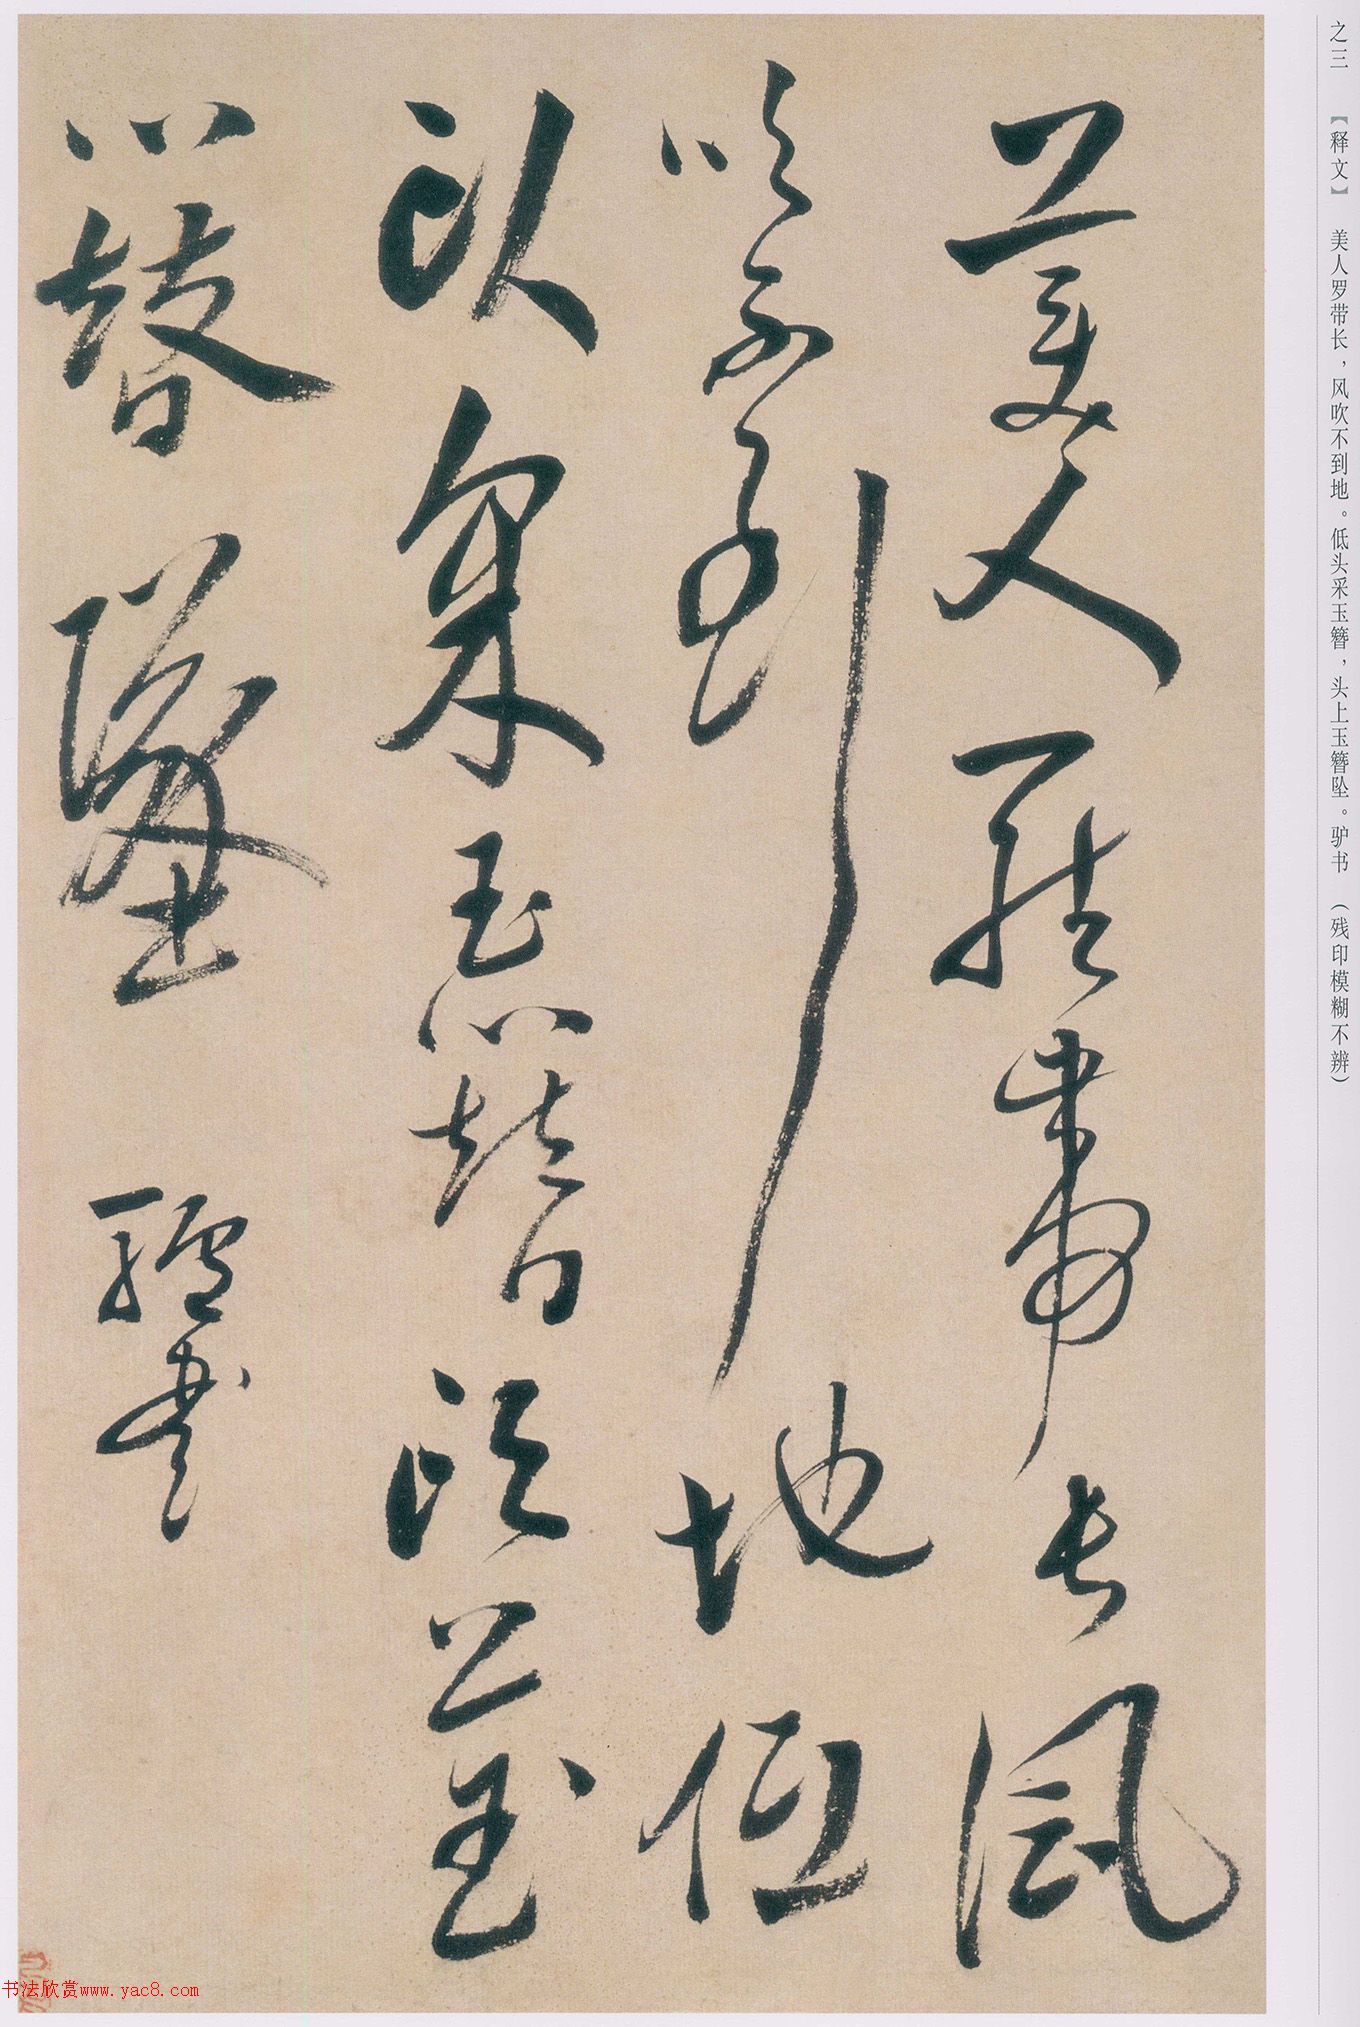 之三 【释文】 美人罗带长，风吹不到地。低头采玉簪，头上玉簪坠。驴书 （残印模糊不辨）
美人羅帶長風
吹不到地低
頭采玉簪頭上玉
簪墜 驢書
书法欣赏www.yac8.com